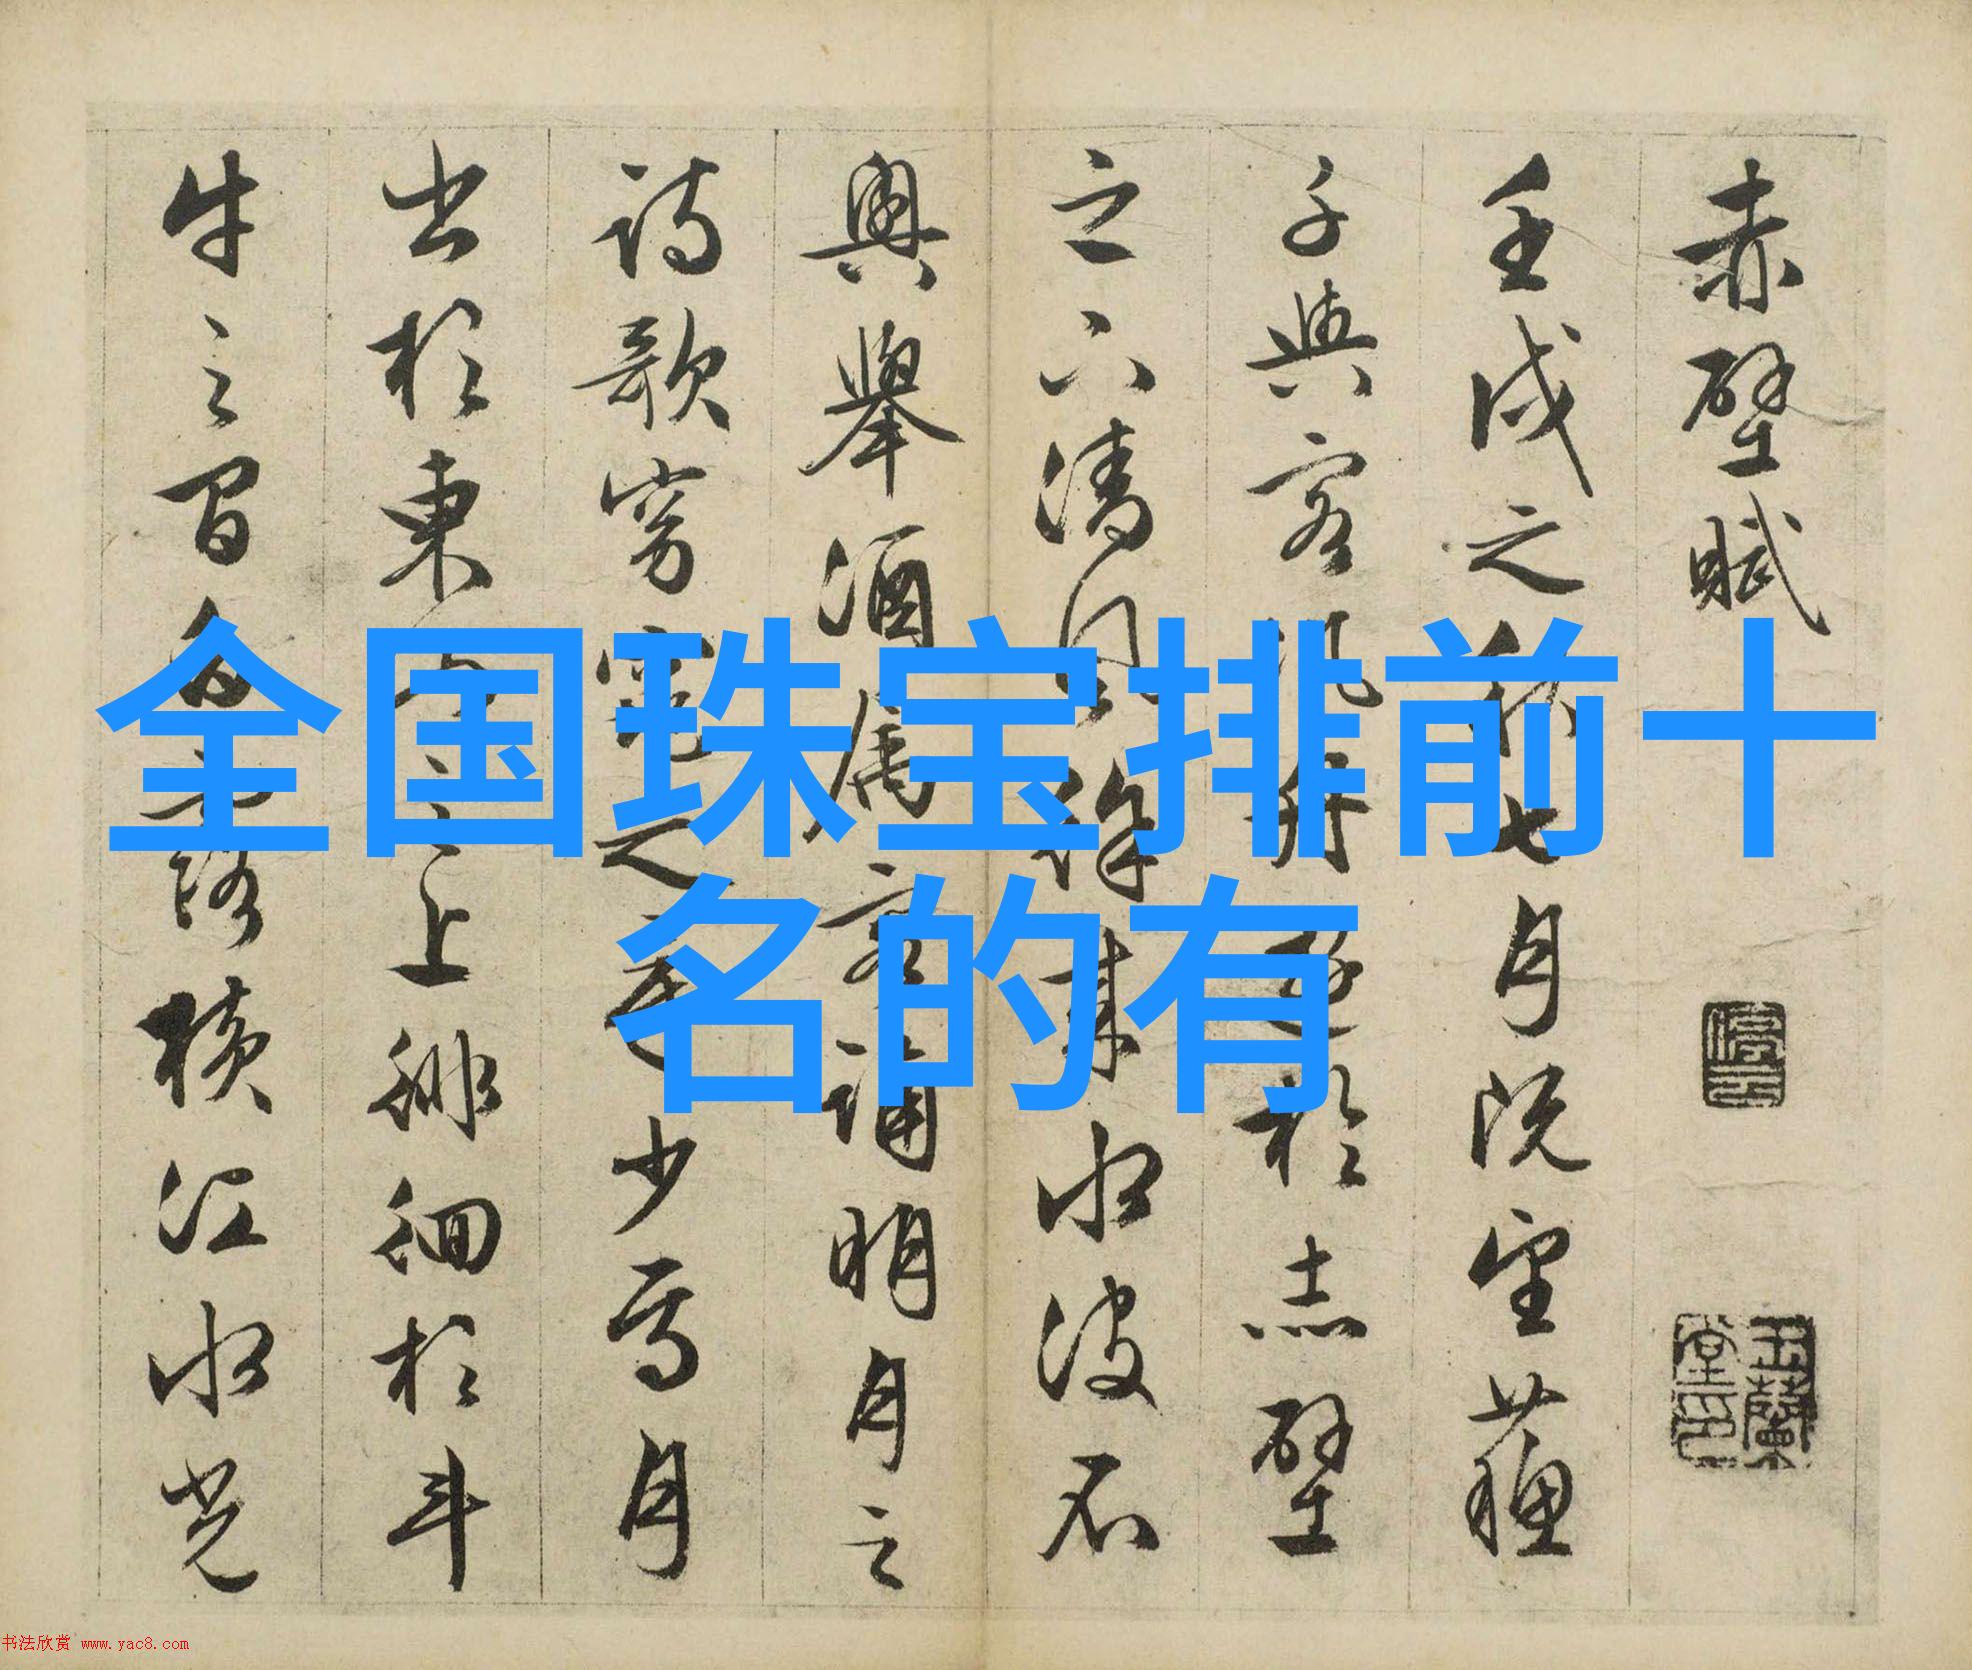 全国珠宝排前十
名的有
赤壁賦
壬戌之秋七月既望蘇
子與客泛舟遊於赤壁
之下清風徐來水波不
興舉酒屬客誦明月之
詩歌窈窕之章少焉月
出於東山之上徘徊於斗
牛之間白露橫江水光
停雲
玉蘭堂印
书法欣赏 www.yac8.com